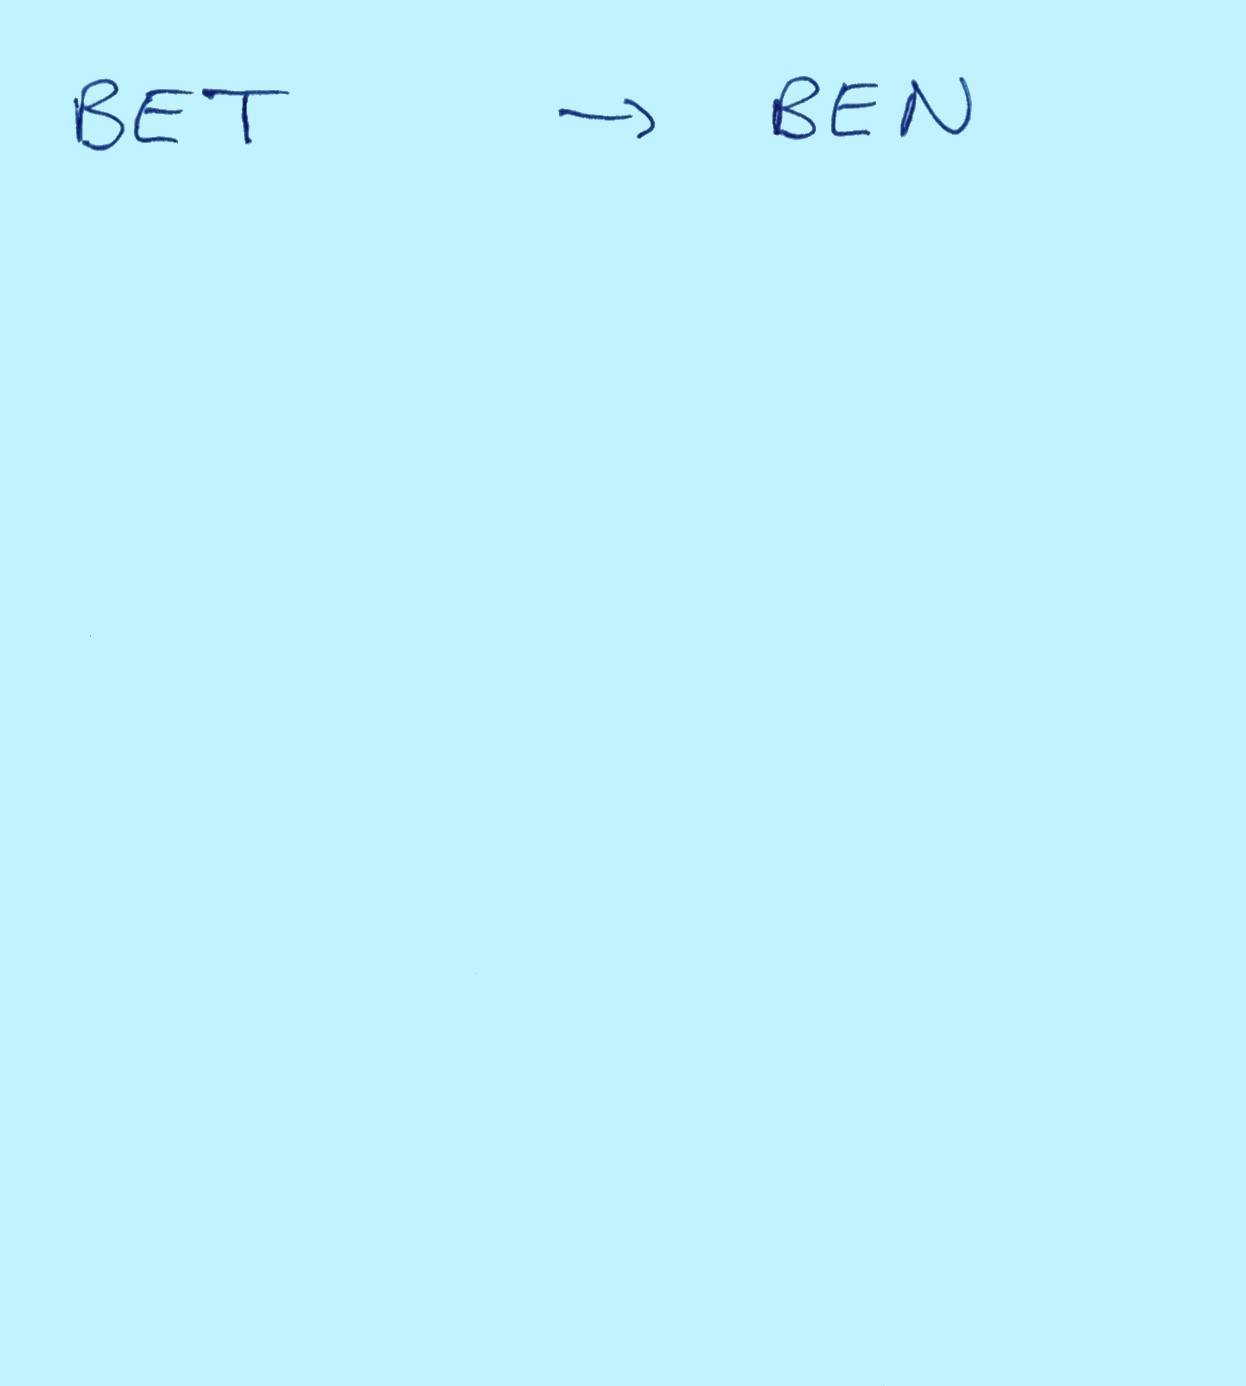 BET → BEN